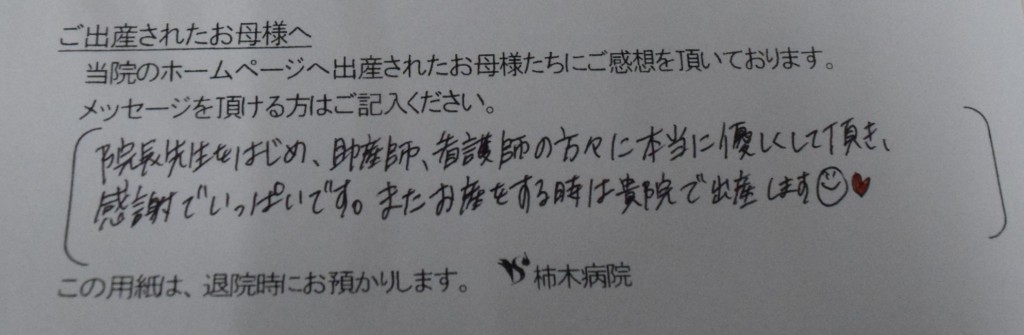 ご出産されたお母様へ
当院のホームページへ出産されたお母様たちにご感想を頂いております。
メッセージを頂ける方はご記入ください。
院長先生をはじめ、助産師、看護師の方々に本当に優しくして頂き、
感謝でいっぱいです。またお産をする時は貴院で出産します☺♥
この用紙は、退院時にお預かりします。 柿木病院